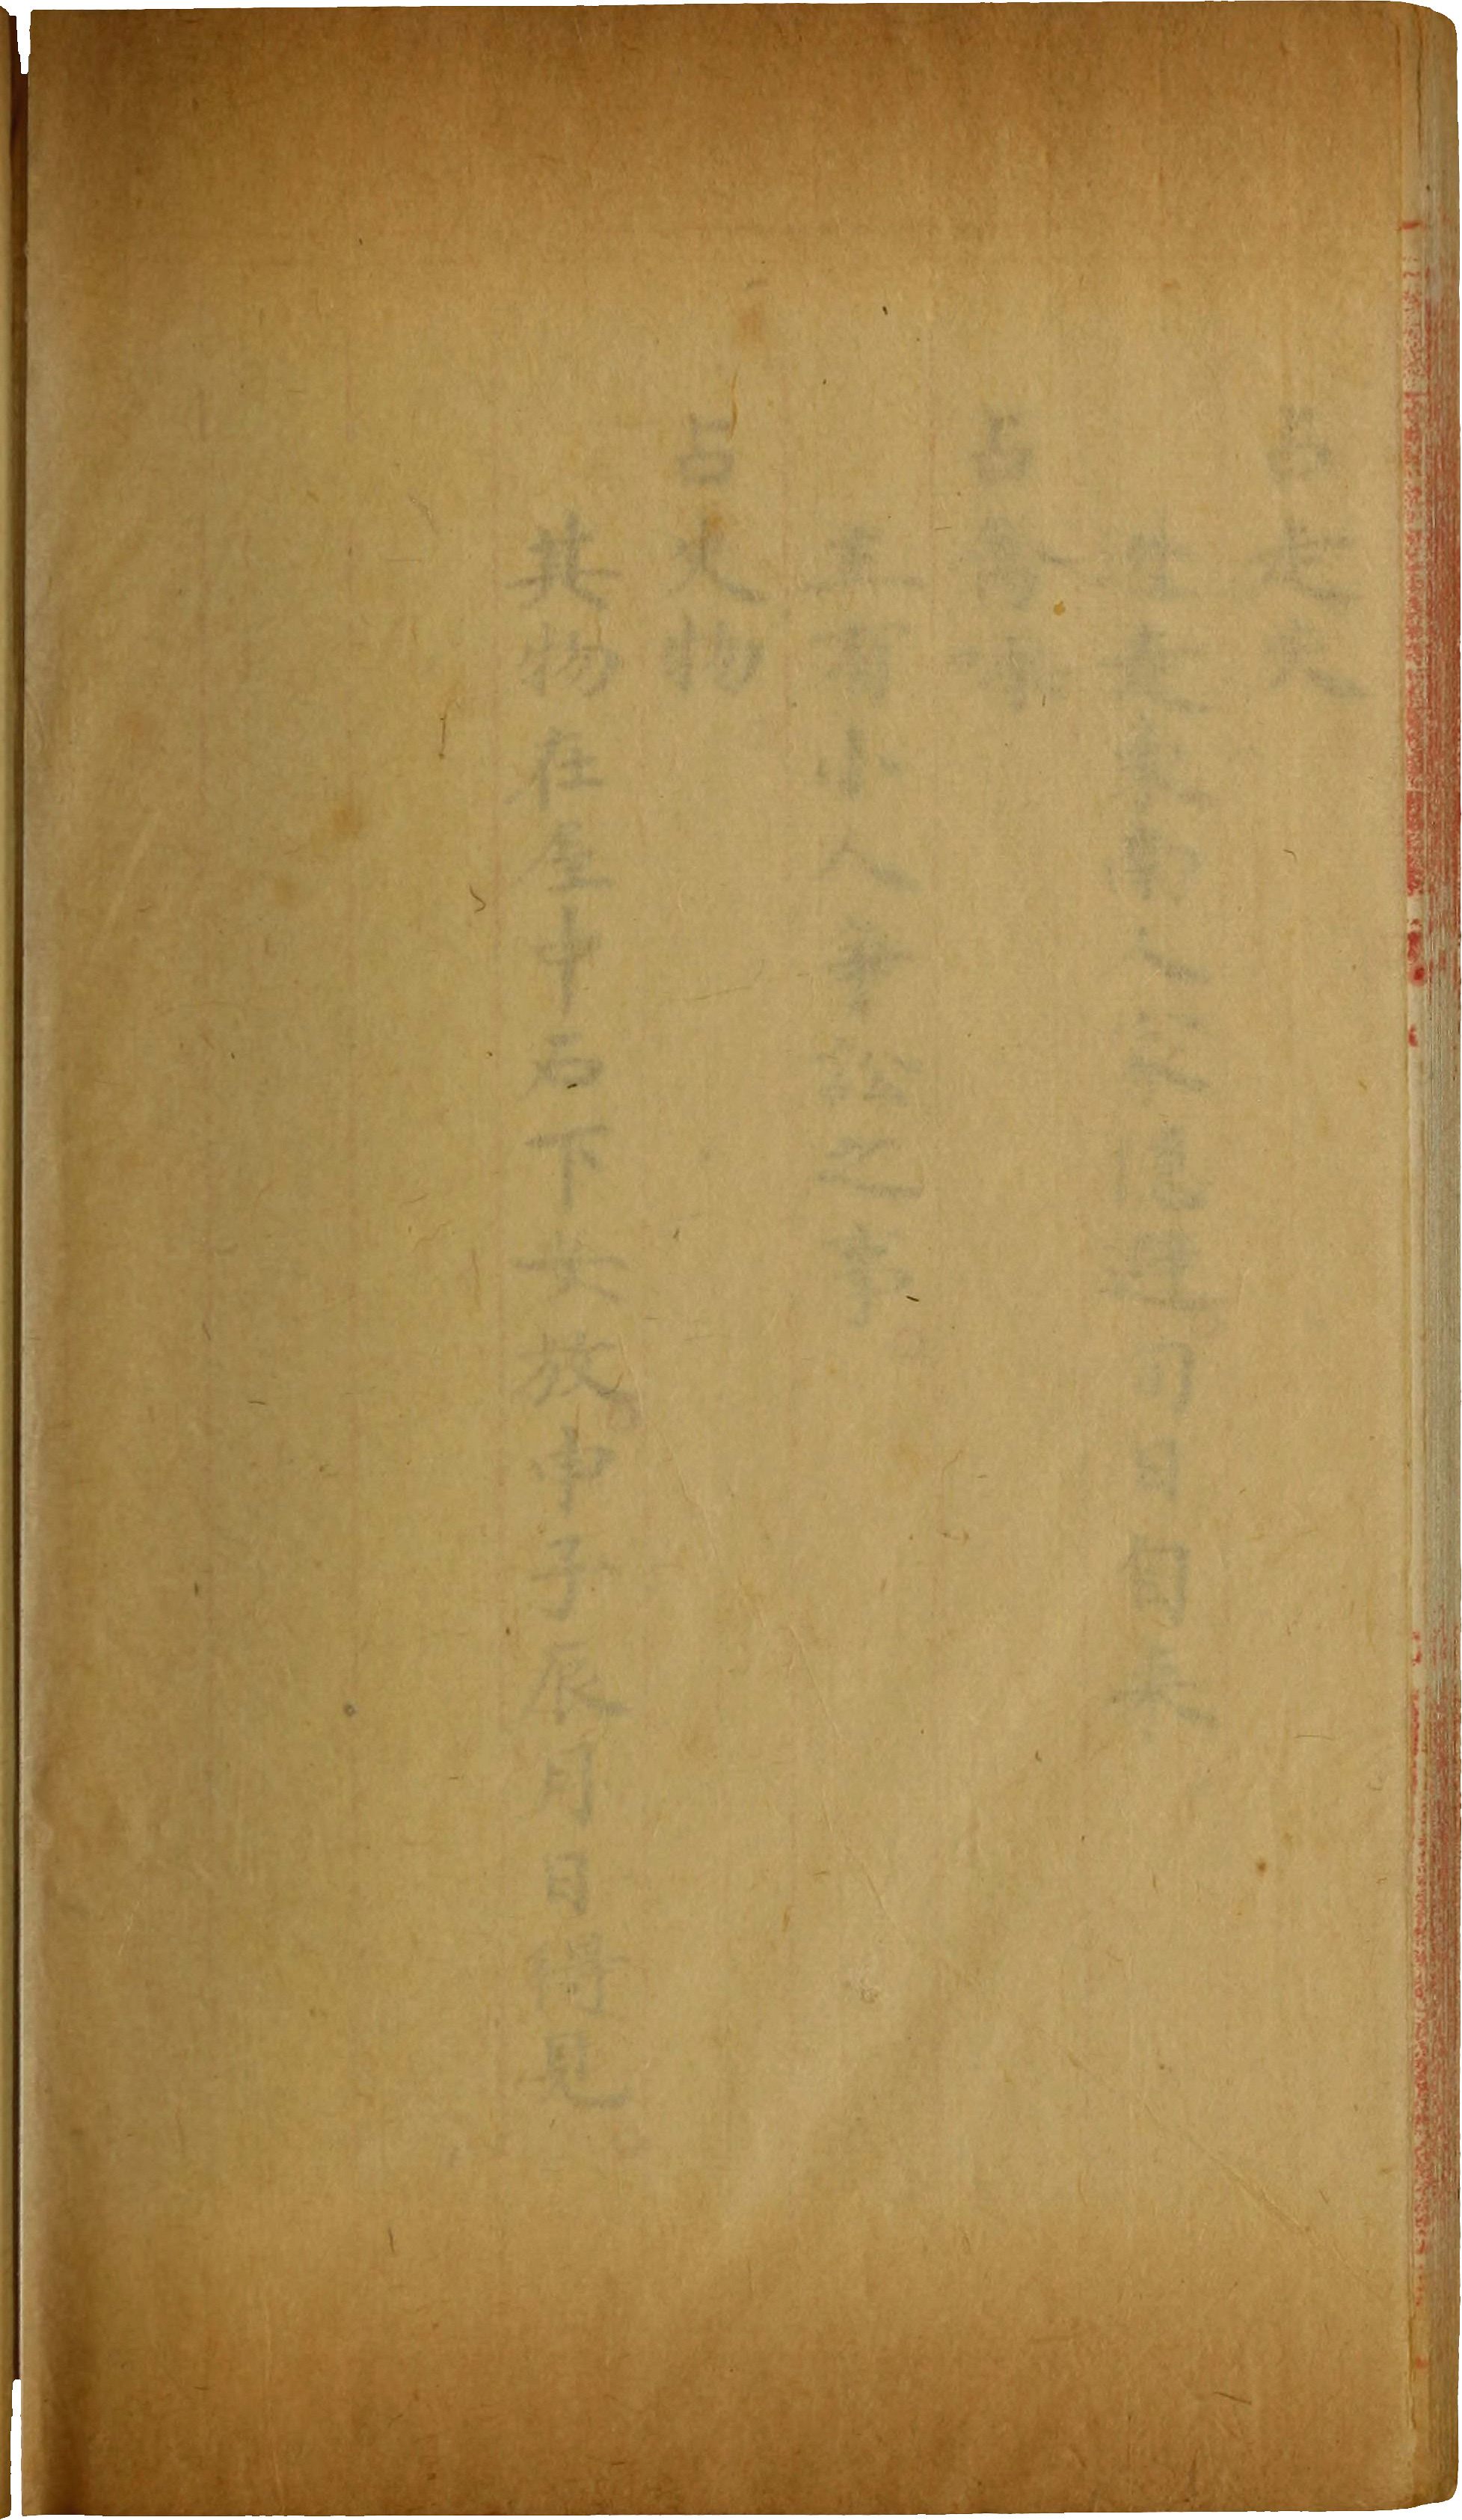 占走失
走東南人家隱避旬日自來
占怪
主有小人爭訟之事
占失物
其物在屋中石下女放申子辰月日得見